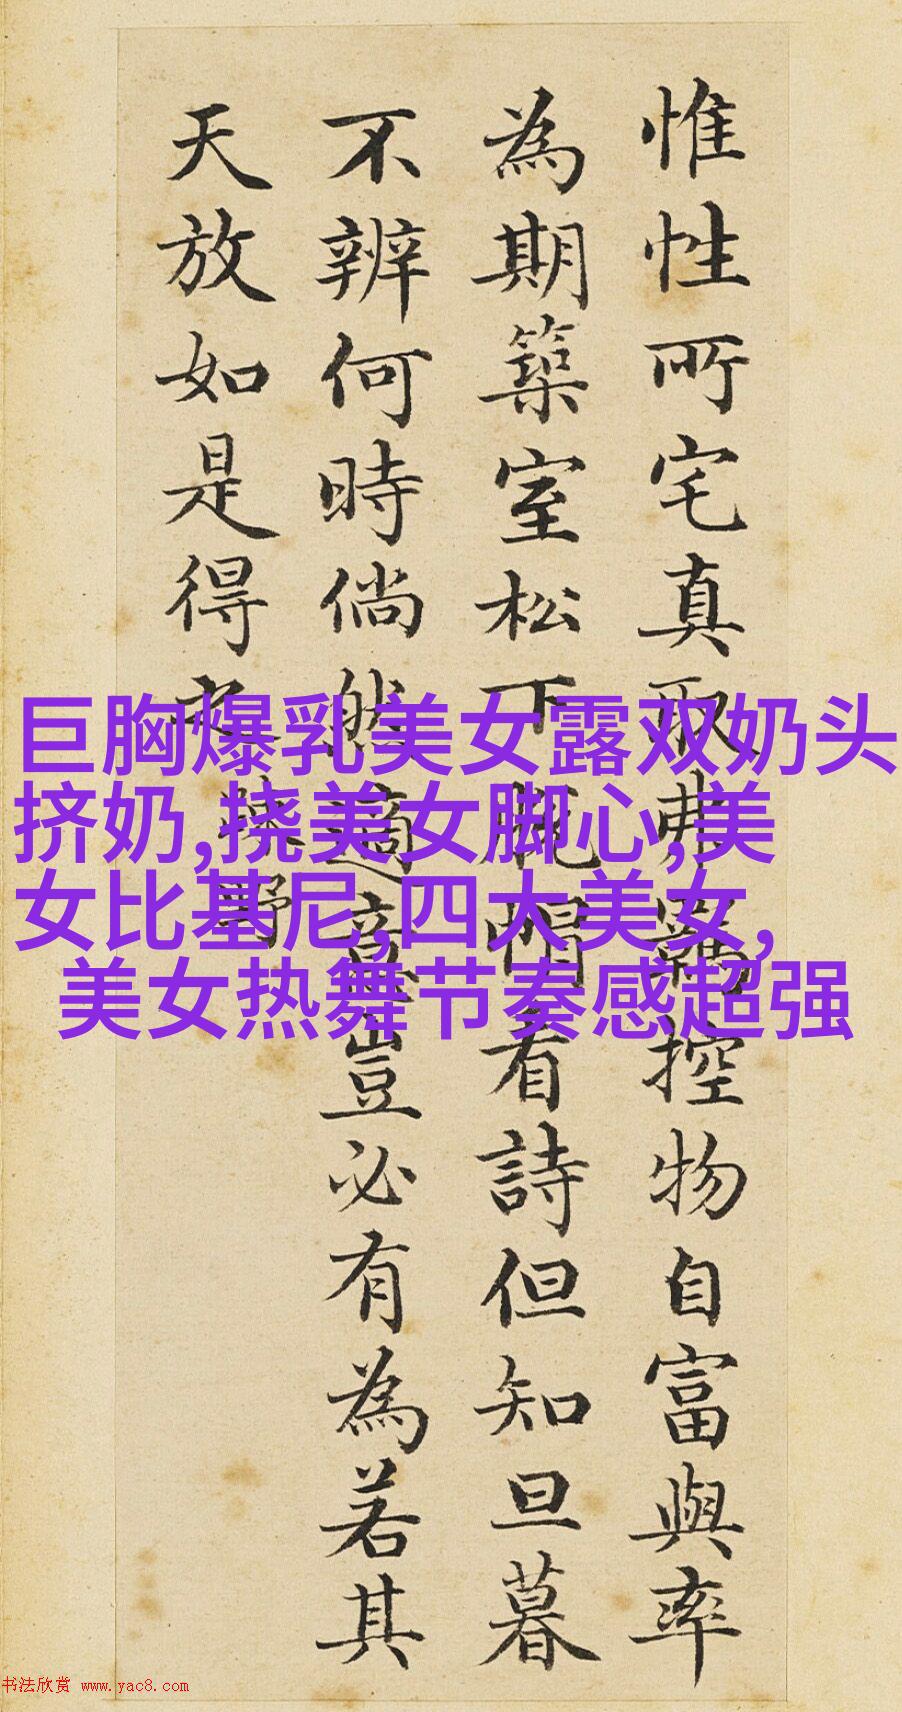 惟性所宅真取弗羈控物自富與率
為期築室松下脫帽看詩但知旦暮
不辨何時倘然適意豈必有為若其
天放如是得之
疎野
巨胸爆乳美女露双奶头
挤奶,挠美女脚心,美
女比基尼,四大美女,
美女热舞节奏感超强
书法欣赏 www.yac8.com